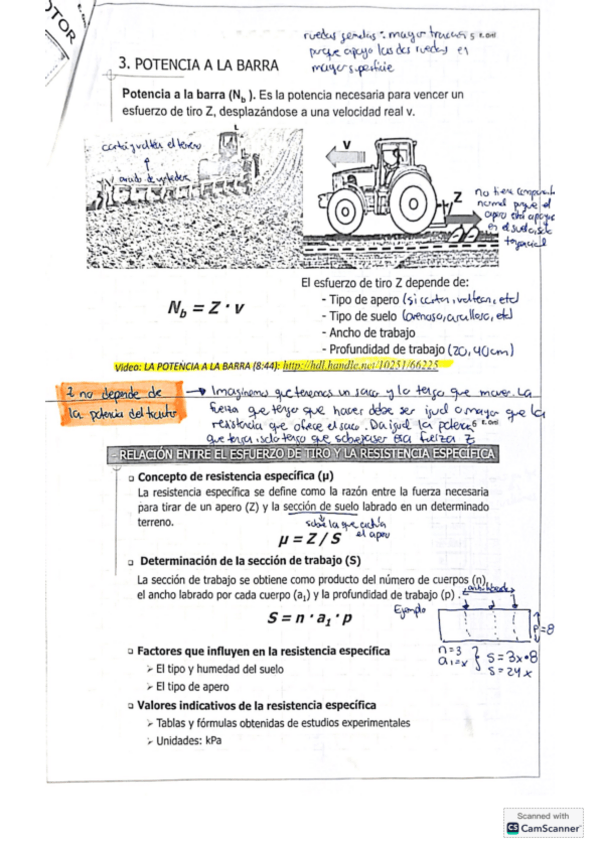 OTOR
ruedas gemelas = mayor tracción
porque apoyo las dos ruedas en
mayor superficie
3. POTENCIA A LA BARRA
Potencia a la barra (Nb ). Es la potencia necesaria para vencer un
esfuerzo de tiro Z, desplazándose a una velocidad real v.
corta y voltea el terreno
arado de vertedera
V
Z
no tiene componente
normal porque el
apero está apoyado
en el suelo, solo
tangencial
El esfuerzo de tiro Z depende de:
- Tipo de apero (si cortan, voltean, etc)
- Tipo de suelo (arenoso, arcilloso, etc)
- Ancho de trabajo
- Profundidad de trabajo (20, 40cm)
Nb = Z · v
Video: LA POTENCIA A LA BARRA (8:44): http://hdl.handle.net/10251/66225
Z no depende de
la potencia del tractor
→ Imaginemos que tenemos un saco y lo tengo que mover. La
fuerza que tengo que hacer debe ser igual o mayor que la
resistencia que ofrece el saco. Da igual la potencia
que tenga, solo tengo que sobrepasar esa fuerza Z
- RELACIÓN ENTRE EL ESFUERZO DE TIRO Y LA RESISTENCIA ESPECÍFICA
Concepto de resistencia específica (μ)
La resistencia específica se define como la razón entre la fuerza necesaria
para tirar de un apero (Z) y la sección de suelo labrado en un determinado
terreno.
sobre la que actúa
el apero
μ = Z / S
Determinación de la sección de trabajo (S)
La sección de trabajo se obtiene como producto del número de cuerpos (n),
el ancho labrado por cada cuerpo (a1) y la profundidad de trabajo (p) .
S = n · a1 · p
Ejemplo
P=8
n=3
a1=x
S = 3x·8
S = 24x
Factores que influyen en la resistencia específica
➢ El tipo y humedad del suelo
➢ El tipo de apero
Valores indicativos de la resistencia específica
➢ Tablas y fórmulas obtenidas de estudios experimentales
➢ Unidades: kPa
Scanned with
CS CamScanner